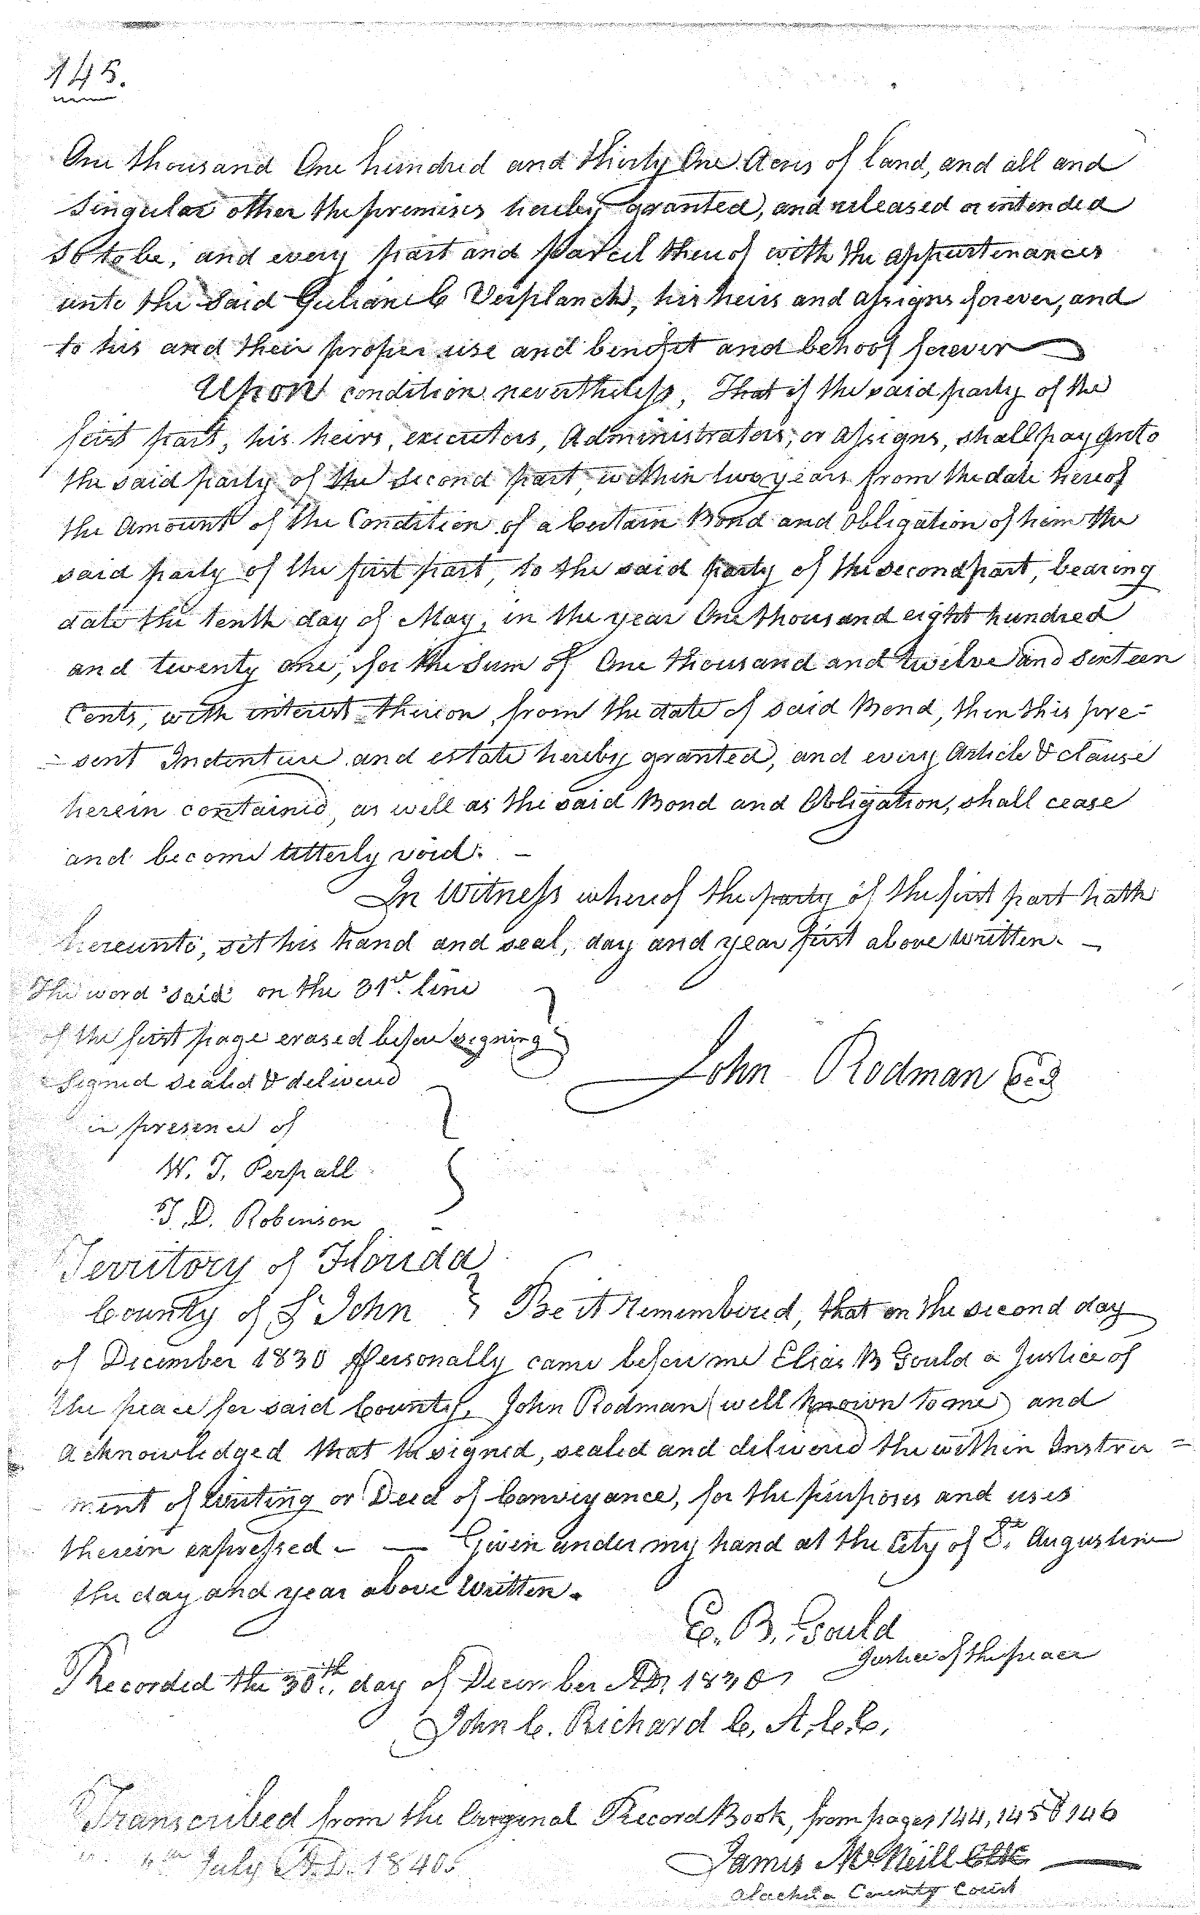 145.
One thousand One hundred and thirty One Acres of land, and all and
Singular other the premises hereby granted, and released or intended
So to be, and every part and parcel thereof with the appurtenances
unto the said Gulian C Verplanck, his heirs and assigns forever, and
to his and their proper use and benefit and behoof forever
Upon condition nevertheless, That if the said party of the
first part, his heirs, executors, Administrators, or assigns, shall pay unto
the said party of the second part, within two years from the date hereof
the Amount of the Condition of a Certain Bond and Obligation of him the
said party of the first part, to the said party of the second part, bearing
date the tenth day of May, in the year One thousand eight hundred
and twenty one, for the Sum of One thousand and twelve and sixteen
Cents, with interest thereon from the date of said Bond, then this pre=
=sent Indenture and estate hereby granted, and every Article & clause
herein contained, as well as the said Bond and Obligation, shall cease
and become utterly void. —
In Witness whereof the party of the first part hath
hereunto, set his hand and seal, day and year first above written. —
The word "said" on the 31st. line
of the first page erased before signing
Signed sealed & delivered
John Rodman
in presence of
W. T. Perpall
T. D. Robinson
Territory of Florida
County of St John } Be it remembered, that on the second day
of December 1830 Personally came before me Elias B Gould a Justice of
the peace for said County, John Rodman (well known to me) and
acknowledged that he signed, sealed and delivered the within Instru=
ment of writing or Deed of Conveyance, for the purposes and uses
therein expressed - — Given under my hand at the City of St. Augustine
the day and year above written.
E. B. Gould
Justice of the peace
Recorded the 30th. day of December AD. 1830
John C. Richard C. A. C. C.
Transcribed from the Original Record Book, from pages 144, 145 & 146
4th July A.D. 1840.
James McNeill Clk
Alachua County Court